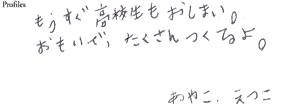 Profiles
もうすぐ高校生もおしまい。
おもいで、たくさんつくるよ。
あやこ、えつこ